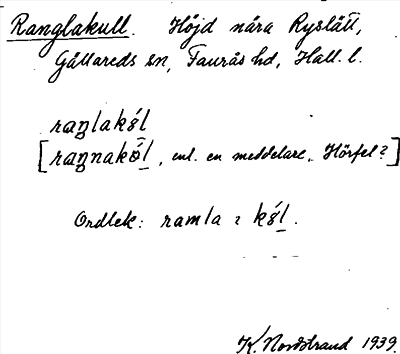 Ranglakull. Höjd nära Ryslätt,
Gällareds sn, Faurås hd, Hall. l.
raŋlakǿl
[raŋnakǿl, enl. en meddelare. Hörfel?]
Ordlek: ramla i kǿl.
K. Nordstrand 1939.